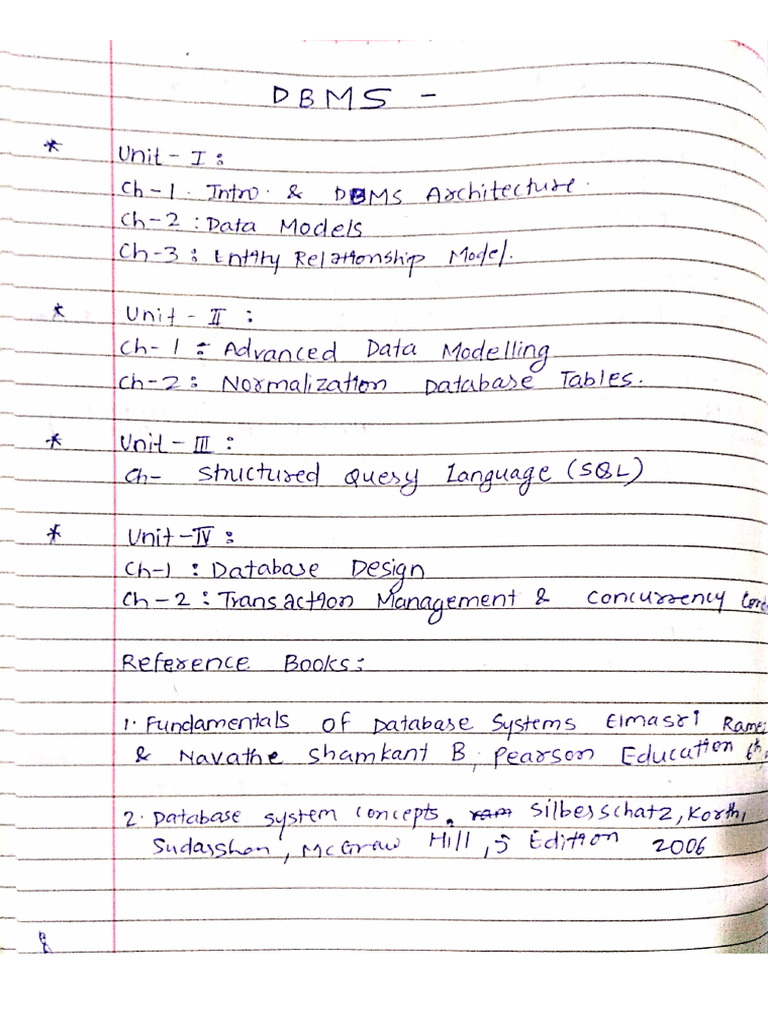 DBMS -
* Unit - I :
Ch-1. Intro. & DBMS Architecture.
Ch-2 : Data Models
Ch-3 : Entity Relationship Model.
* Unit - II :
Ch-1 : Advanced Data Modelling
Ch-2 : Normalization Database Tables.
* Unit - III :
Ch- Structured Query Language (SQL)
* Unit - IV :
Ch-1 : Database Design
Ch-2 : Transaction Management & Concurrency
Reference Books :
1. Fundamentals of Database Systems Elmasri
& Navathe Shamkant B, Pearson Education 6th
2. Database system concepts, Silbesschatz, Korth,
Sudasshan, McGraw Hill, 5 Edition 2006